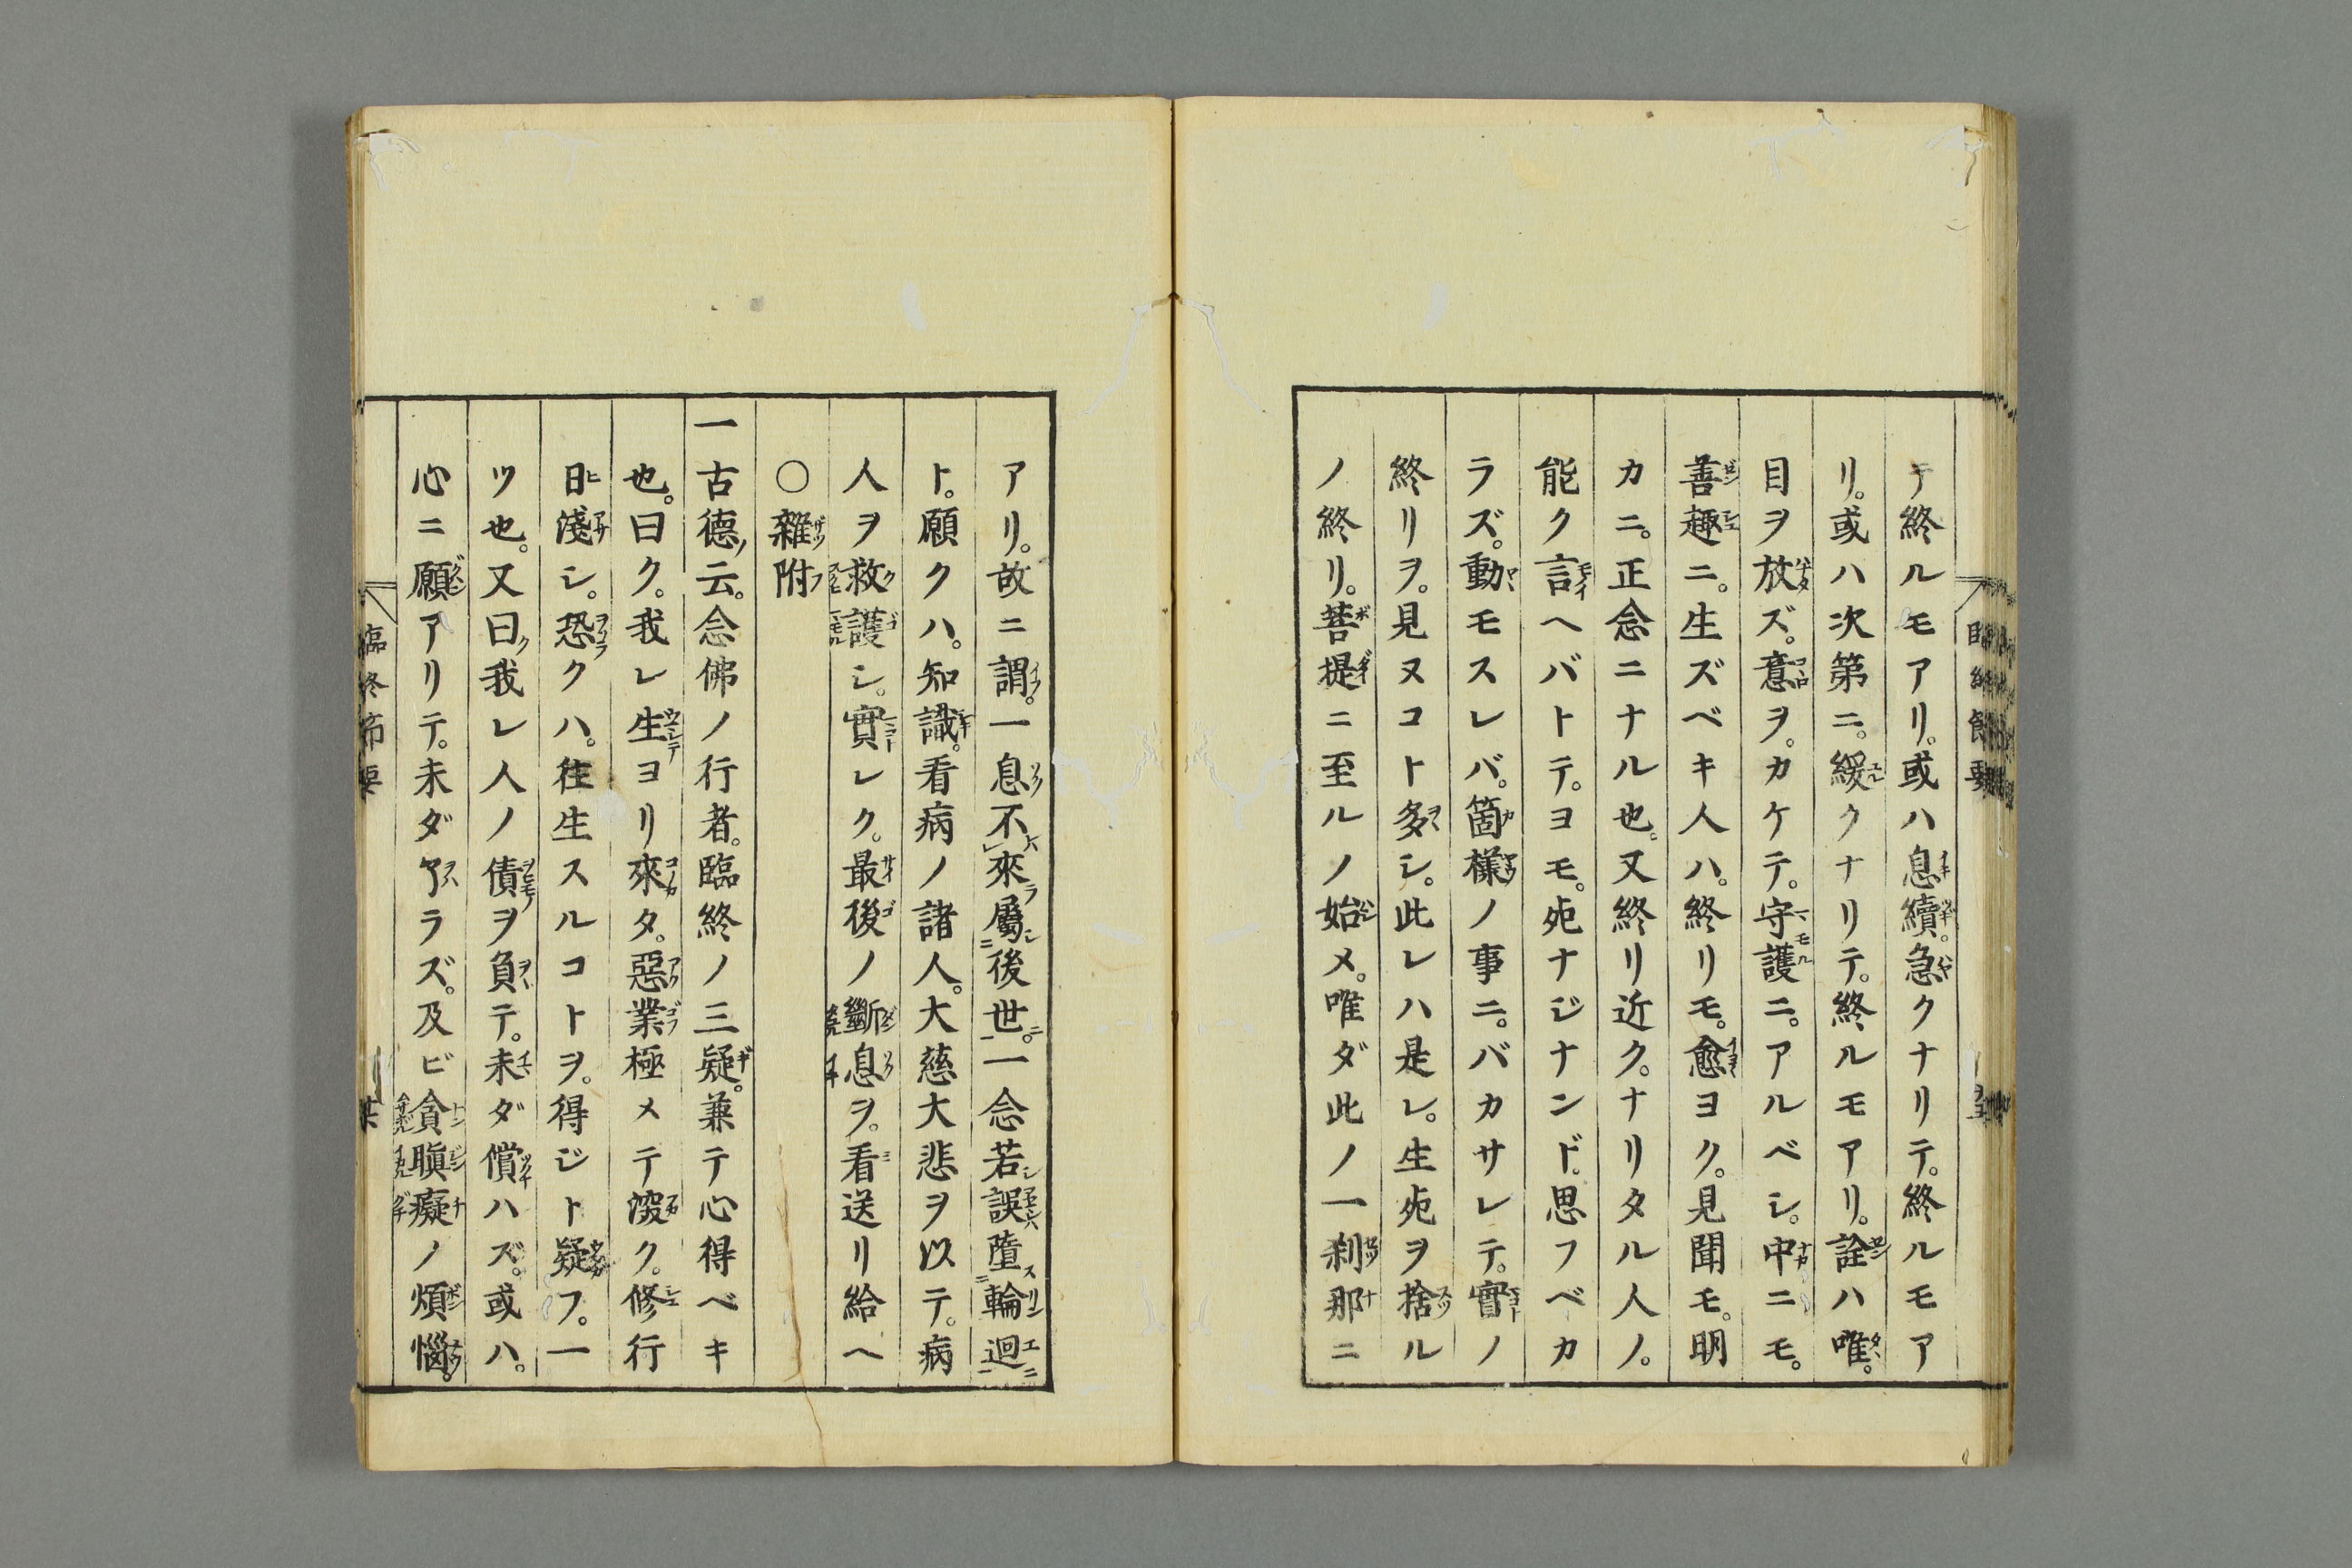 テ終ルモアリ。或ハ息續。急クナリテ。終ルモア
リ。或ハ次第ニ。緩クナリテ。終ルモアリ。詮ハ唯。
目ヲ放ズ。意ヲ。カケテ。守護ニ。アルベシ。中ニモ。
善趣ニ。生ズベキ人ハ。終リモ。愈ヨク。見聞モ。明
カニ。正念ニナル也。又終リ近ク。ナリタル人ノ。
能ク言ヘバトテ。ヨモ。死ナジナンド。思フベカ
ラズ。動モスレバ。箇樣ノ事ニ。バカサレテ。實ノ
終リヲ。見ヌコト多シ。此レハ是レ。生死ヲ捨ル
ノ終リ。菩提ニ至ルノ始メ。唯ダ此ノ一刹那ニ
アリ。故ニ謂。一息不來屬後世。一念若誤墮輪迴
ト。願クハ。知識。看病ノ諸人。大慈大悲ヲ以テ。病
人ヲ救護シ。實レク。最後ノ斷息ヲ。看送リ給ヘ
○雜附
一古德ノ云。念佛ノ行者。臨終ノ三疑。兼テ心得ベキ
也。曰ク。我レ生ヨリ來タ。惡業極メテ深ク。修行
日淺シ。恐クハ。往生スルコトヲ。得ジト疑フ。一
ツ也。又曰ク我レ人ノ債ヲ負テ。未ダ償ハズ。或ハ。
心ニ願アリテ。未ダ了ラズ。及ビ貪瞋癡ノ煩惱。
臨終節要